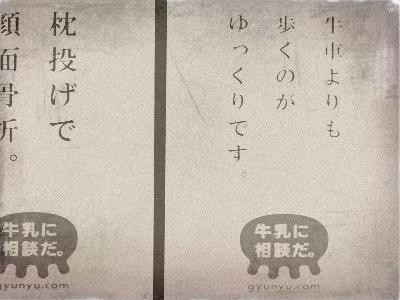 牛車よりも
歩くのが
ゆっくりです。
牛乳に
相談だ。
gyunyu.com
枕投げで
顔面骨折。
牛乳に
相談だ。
gyunyu.com